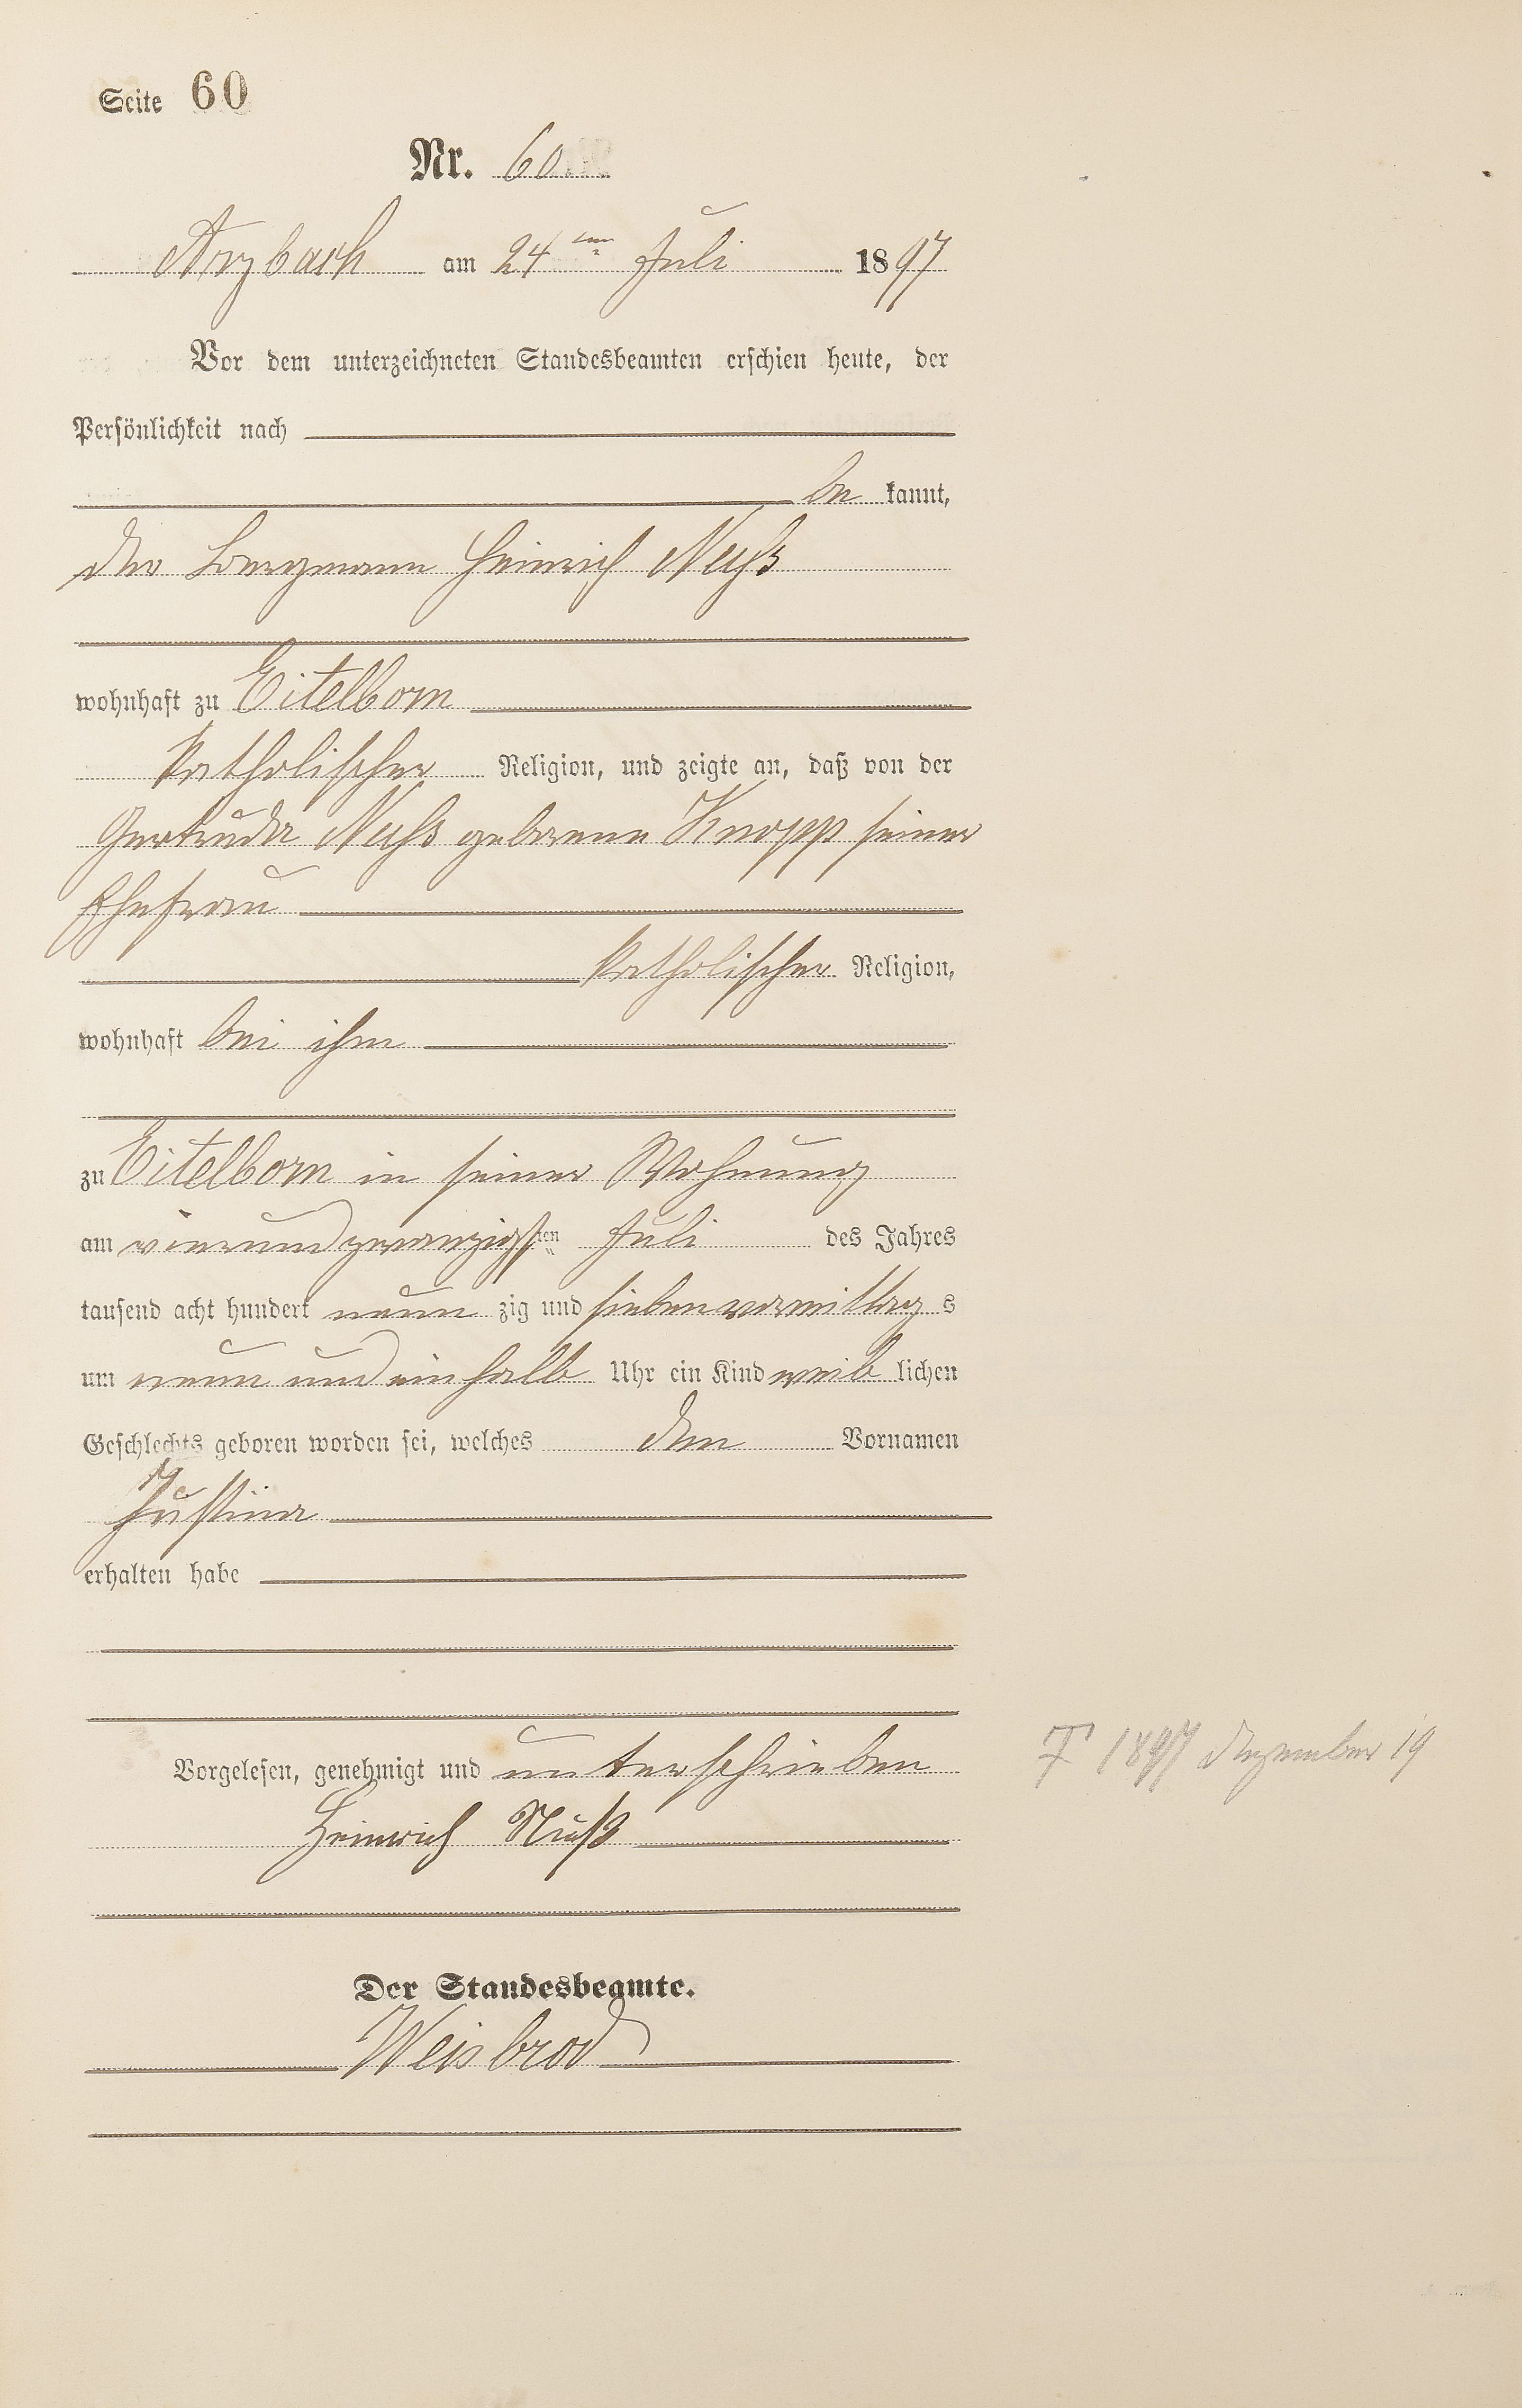 Seite 60
Nr. 60
Arzbach am 24ten Juli 1897
Vor dem unterzeichneten Standesbeamten erschien heute, der
Persönlichkeit nach
be kannt,
der Bergmann Heinrich Nuß
wohnhaft zu Eitelborn
katholischer Religion, und zeigte an, daß von der
Gertruda Nuß geborene Knopp seiner
Ehefrau
katholischer Religion,
wohnhaft bei ihm
zu Eitelborn in seiner Wohnung
am vierundzwanzigsten Juli des Jahres
tausend acht hundert neun zig und sieben vormittag s
um neun und ein halb Uhr ein Kind weib lichen
Geschlechts geboren worden sei, welches den Vornamen
Justina
erhalten habe
Vorgelesen, genehmigt und unterschrieben
† 1897 Dezember 19
Heinrich Nuß
Der Standesbeamte.
Weisbrod